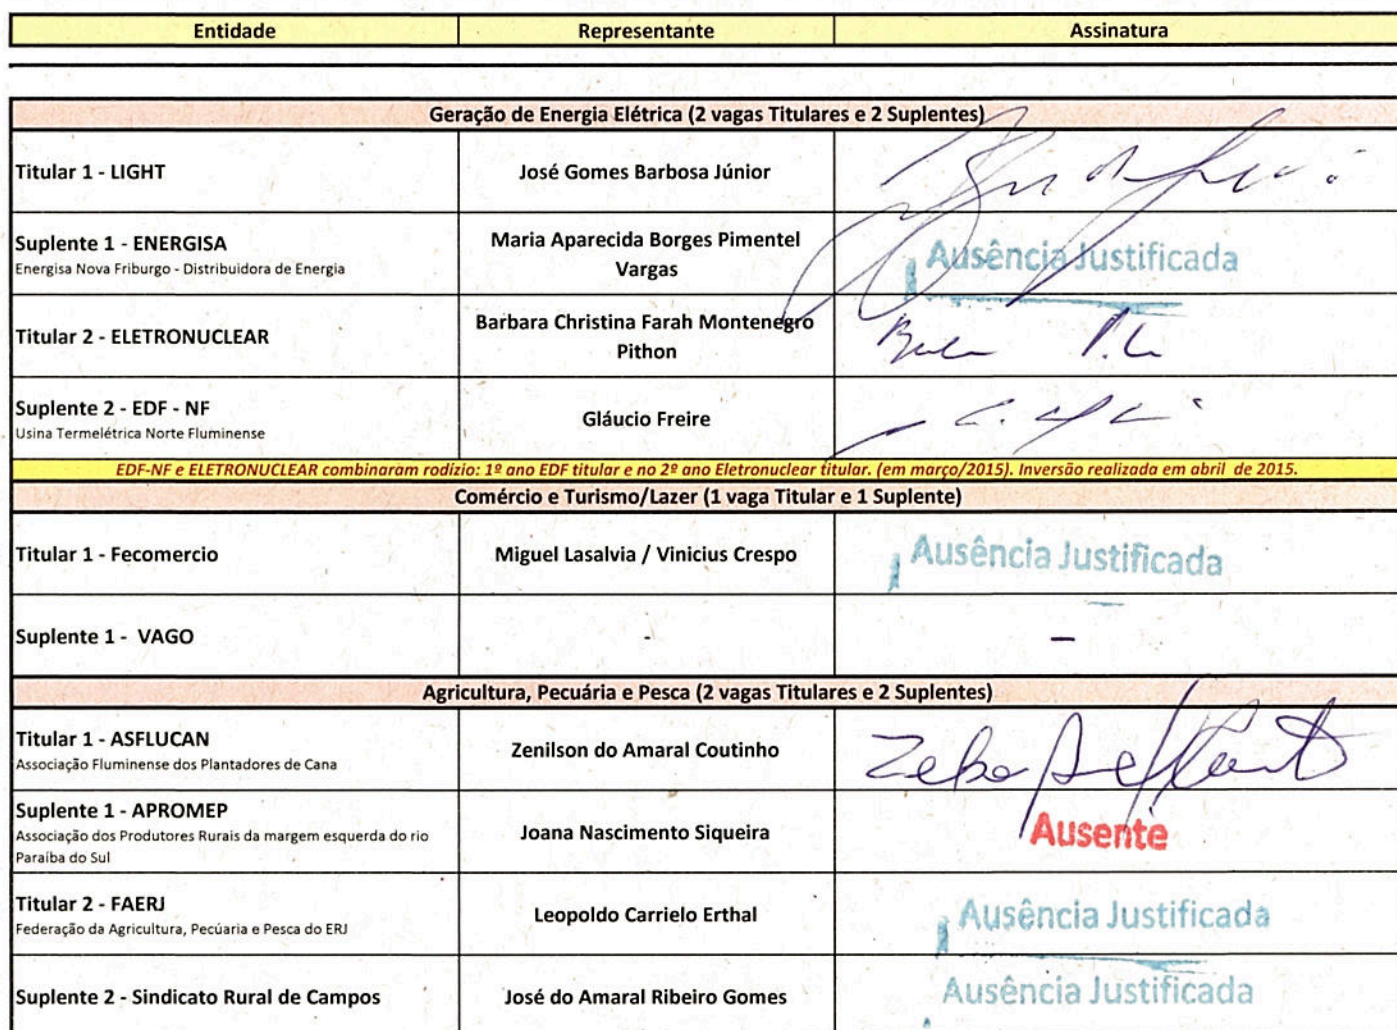 Entidade Representante Assinatura
Geração de Energia Elétrica (2 vagas Titulares e 2 Suplentes)
Titular 1 - LIGHT José Gomes Barbosa Júnior
Suplente 1 - ENERGISA
Energisa Nova Friburgo - Distribuidora de Energia
Maria Aparecida Borges Pimentel
Vargas
Ausência Justificada
Titular 2 - ELETRONUCLEAR
Barbara Christina Farah Montenegro
Pithon
Suplente 2 - EDF - NF
Usina Termelétrica Norte Fluminense
Gláucio Freire
EDF-NF e ELETRONUCLEAR combinaram rodízio: 1º ano EDF titular e no 2º ano Eletronuclear titular. (em março/2015). Inversão realizada em abril de 2015.
Comércio e Turismo/Lazer (1 vaga Titular e 1 Suplente)
Titular 1 - Fecomercio Miguel Lasalvia / Vinicius Crespo Ausência Justificada
Suplente 1 - VAGO - -
Agricultura, Pecuária e Pesca (2 vagas Titulares e 2 Suplentes)
Titular 1 - ASFLUCAN
Associação Fluminense dos Plantadores de Cana
Zenilson do Amaral Coutinho
Suplente 1 - APROMEP
Associação dos Produtores Rurais da margem esquerda do rio
Paraíba do Sul
Joana Nascimento Siqueira
Ausente
Titular 2 - FAERJ
Federação da Agricultura, Pecúaria e Pesca do ERJ
Leopoldo Carrielo Erthal
Ausência Justificada
Suplente 2 - Sindicato Rural de Campos José do Amaral Ribeiro Gomes Ausência Justificada